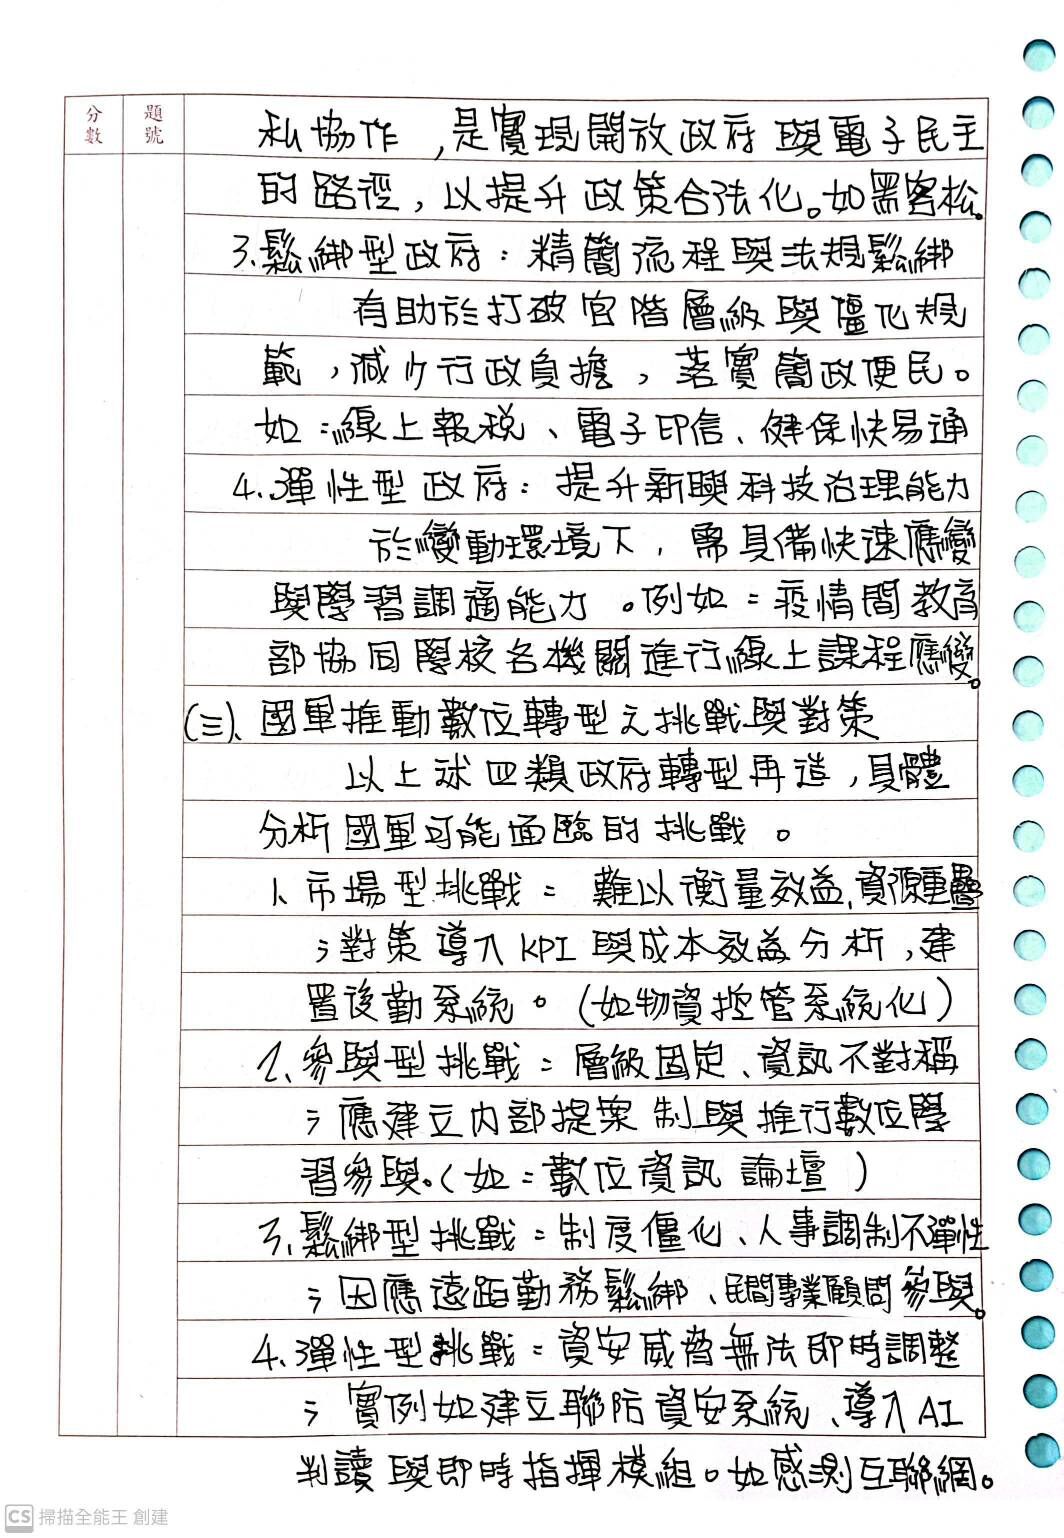 分數
題號
私協作,是實現開放政府與電子民主
的路徑,以提升政策合法化。如黑客松。
3.鬆綁型政府:精簡流程與法規鬆綁
有助於打破官階層級與僵化規
範,減少行政負擔,落實簡政便民。
如:線上報稅、電子印信、健保快易通
4.彈性型政府:提升新興科技治理能力
於變動環境下,需具備快速應變
與學習調適能力。例如:疫情間教育
部協同學校各機關進行線上課程應變。
(三)、國軍推動數位轉型之挑戰與對策
以上述四類政府轉型再造,具體
分析國軍可能面臨的挑戰。
1、市場型挑戰:難以衡量效益、資源重疊
;對策導入KPI與成本效益分析,建
置後勤系統。(如物資控管系統化)
2、參與型挑戰:層級固定、資訊不對稱
;應建立內部提案制與推行數位學
習參與。(如:數位資訊論壇)
3、鬆綁型挑戰:制度僵化、人事調制不彈性
;因應遠距勤務鬆綁、民間事業顧問參與。
4、彈性型挑戰:資安威脅無法即時調整
;實例如建立聯防資安系統、導入AI
判讀與即時指揮模組。如感測互聯網。
CS 掃描全能王 創建